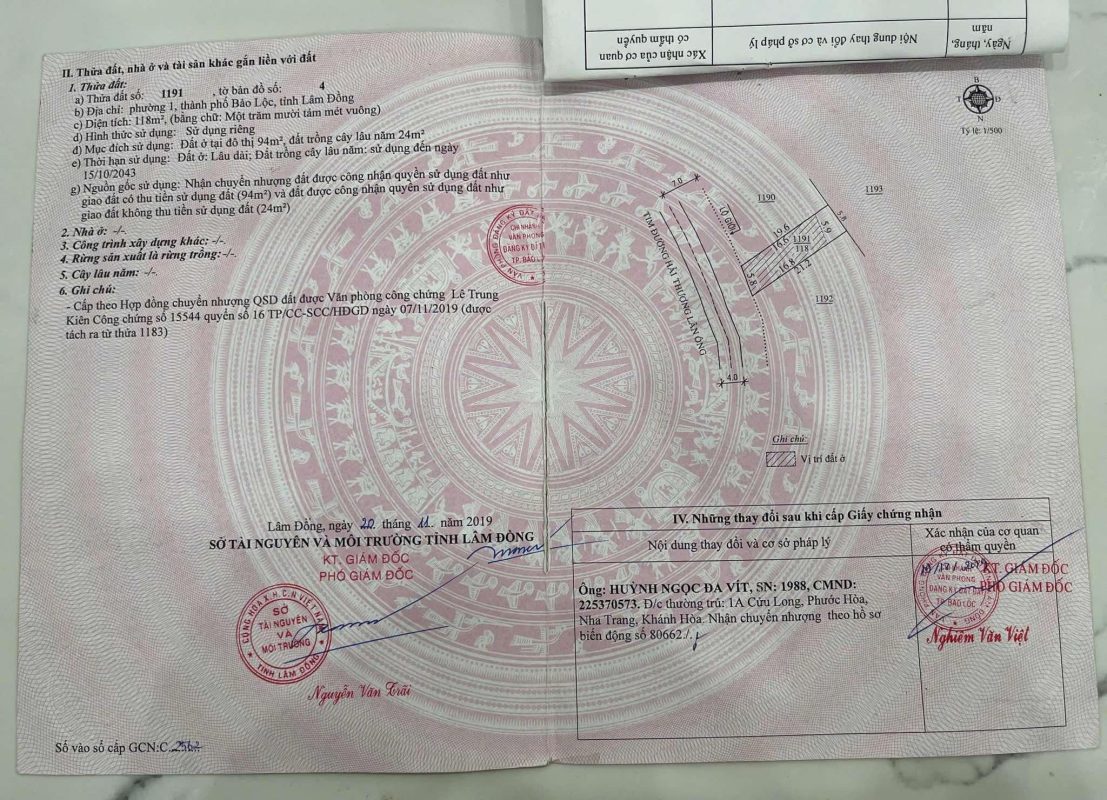 II. Thửa đất, nhà ở và tài sản khác gắn liền với đất
1. Thửa đất:
a) Thửa đất số: 1191 , tờ bản đồ số: 4
b) Địa chỉ: phường 1, thành phố Bảo Lộc, tỉnh Lâm Đồng
c) Diện tích: 118m², (bằng chữ: Một trăm mười tám mét vuông)
d) Hình thức sử dụng: Sử dụng riêng
đ) Mục đích sử dụng: Đất ở tại đô thị 94m², đất trồng cây lâu năm 24m²
e) Thời hạn sử dụng: Đất ở: Lâu dài; Đất trồng cây lâu năm: sử dụng đến ngày
15/10/2043
g) Nguồn gốc sử dụng: Nhận chuyển nhượng đất được công nhận quyền sử dụng đất như
giao đất có thu tiền sử dụng đất (94m²) và đất được công nhận quyền sử dụng đất như
giao đất không thu tiền sử dụng đất (24m²)
2. Nhà ở: -/-.
3. Công trình xây dựng khác: -/-.
4. Rừng sản xuất là rừng trồng: -/-.
5. Cây lâu năm: -/-.
6. Ghi chú:
- Cấp theo Hợp đồng chuyển nhượng QSD đất được Văn phòng công chứng Lê Trung
Kiên Công chứng số 15544 quyển số 16 TP/CC-SCC/HĐGD ngày 07/11/2019 (được
tách ra từ thửa 1183)
CHI NHÁNH
VĂN PHÒNG
ĐĂNG KÝ ĐẤT
TP. BẢO
Lâm Đồng, ngày 20 tháng 11 năm 2019
SỞ TÀI NGUYÊN VÀ MÔI TRƯỜNG TỈNH LÂM ĐỒNG
KT. GIÁM ĐỐC
PHÓ GIÁM ĐỐC
CỘNG HÒA X.H.C.N VIỆT NAM
SỞ
TÀI NGUYÊN
VÀ
MÔI TRƯỜNG
TỈNH LÂM ĐỒNG
Nguyễn Văn Trãi
Số vào sổ cấp GCN:C.
Ngày, tháng,
năm
Nội dung thay đổi và cơ sở pháp lý
Xác nhận của cơ quan
có thẩm quyền
B
T
Đ
N
Tỷ lệ: 1/500
7.0
LỘ GIỚI
TIM ĐƯỜNG HẢI THƯỢNG LÃN ÔNG
4.0
1190
1193
1192
19.6
16.6
1191
118
5.9
5.8
16.8
21.2
5.8
Ghi chú:
Vị trí đất ở
IV. Những thay đổi sau khi cấp Giấy chứng nhận
Nội dung thay đổi và cơ sở pháp lý
Xác nhận của cơ quan
có thẩm quyền
Ông: HUỲNH NGỌC ĐA VÍT, SN: 1988, CMND:
225370573. Đ/c thường trú: 1A Cửu Long, Phước Hòa,
Nha Trang, Khánh Hòa. Nhận chuyển nhượng theo hồ sơ
biến động số 80662./.
KT. GIÁM ĐỐC
PHÓ GIÁM ĐỐC
VĂN PHÒNG
ĐĂNG KÝ ĐẤT ĐAI
TP. BẢO LỘC
Nghiêm Văn Việt